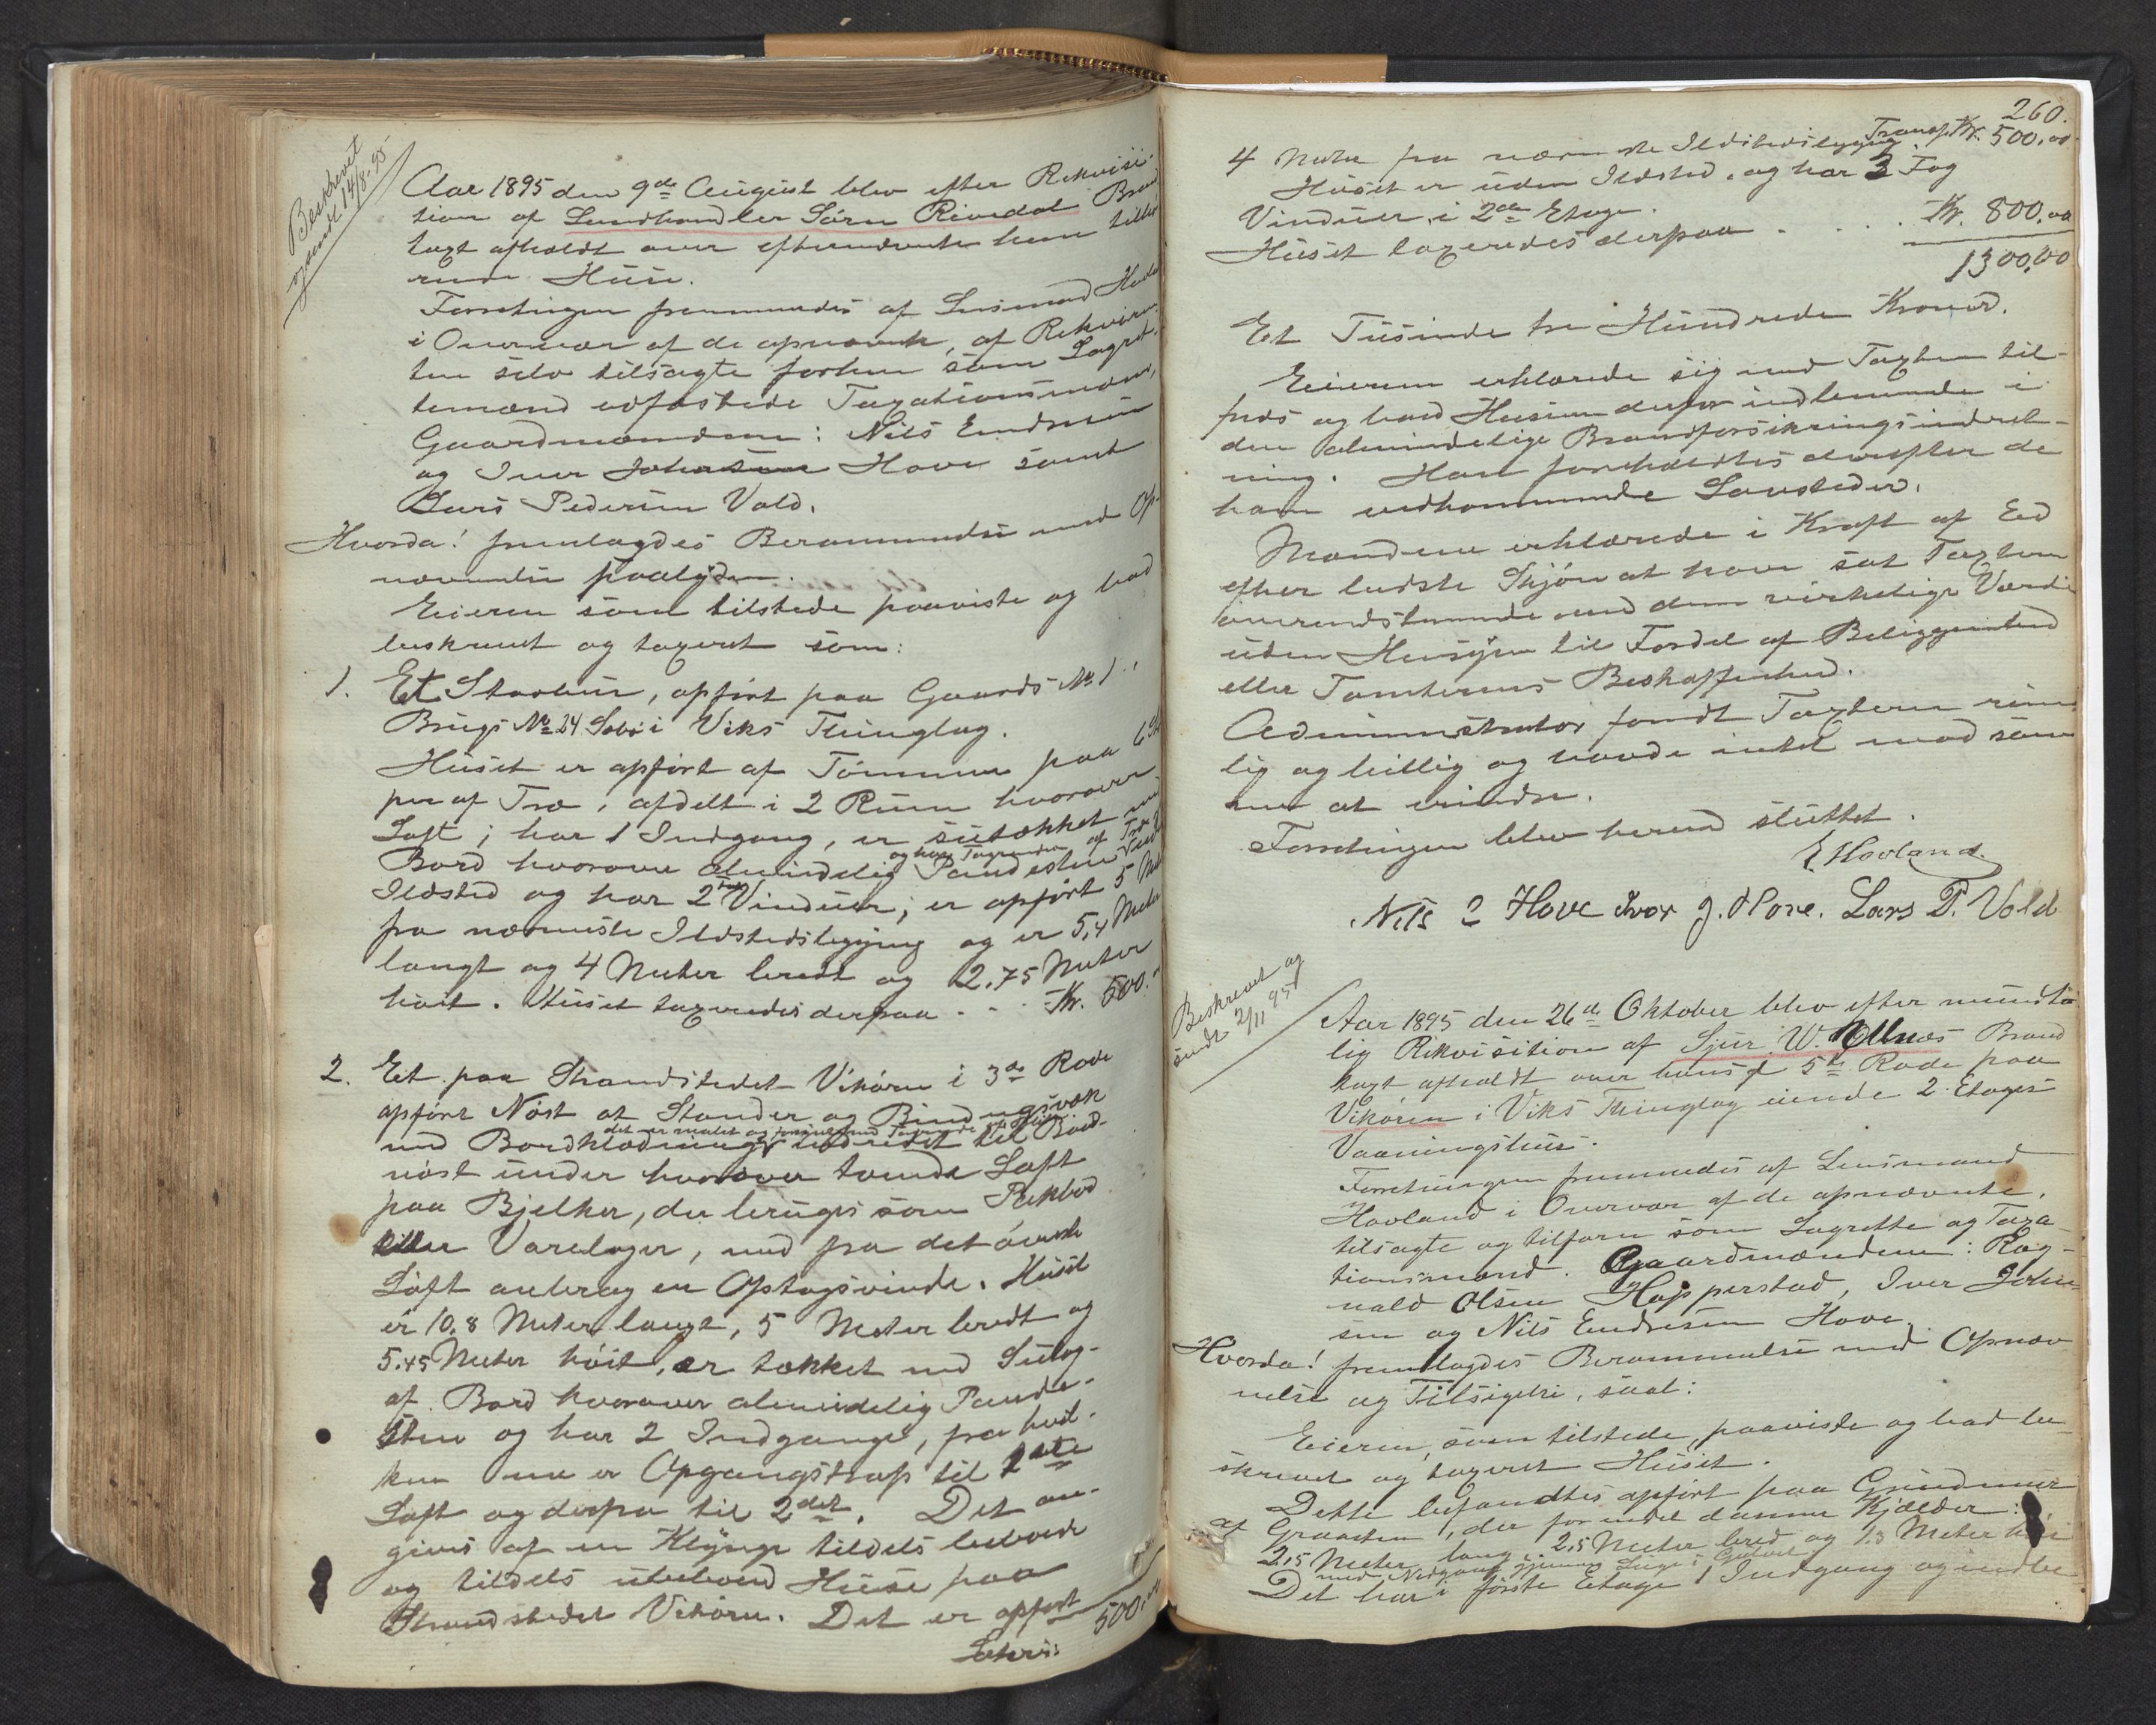 Beskrevet
og sendt 14/8-95
Aar 1895 den 9de August blev efter Rekvisi-
tion af Landhandler Sørn Rivedal Brand
taxt afholdt over efternævnte ham tilhø
rende Huse.
Forretningen fremmedes af Lensmand
i Overvær af de opnævnte, af Rekviren
ten selv tilsagte forhen som Lagret-
temænd edfæstede Taxationsmænd,
Gaardmændene: Nils Endresen
og Iver Johnsen Hove samt
Lars Pedersen Vold.
Hvorda! fremlagdes Berammelse med Op-
nævnelse saalyden.
Eieren som tilstede paaviste og bad
beskrevet og taxeret som:
1. Et Stabur, opført paa Gaards No 1
Brugs No 24 Sæbø i Viks Thinglag.
Huset er opført af Tømmer paa 6 Stol
per af Træ, afdelt i 2 Rum hvorover
Loft; har 1 Indgang, er sutækket med
og har Tagrender af Træ
Bord hvorover almindelig Pandesten
Ildsted og har 2 Vinduer; er opført 5 Meter
fra nærmeste Ildstedsbygning og er 5,4 Meter
langt og 4 Meter bredt og 2.75 Meter
høit. Huset taxeredes derpaa - - Kr. 500.
2. Et paa Strandstedet Vikøren i 3de Rode
opført Nøst af Stander og Bindingsværk
det er malet og forsynet med Tagrender af
med Bordklædning, indredet til Baad-
nøst under hvorover tvende Loft
paa Bjelker, der bruges som Pakbod
eller Varelager, med fra det øverste
Loft anbrag en Optagsvinde. Huset
er 10.8 Meter langt, 5 Meter bredt og
5.45 Meter høit, er tækket med Sutag-
af Bord hvorover almindelig Pande-
sten og har 2 Indgange, fra hvil-
ken ene er Opgangstrap til 1ste
Loft og derfra til 2det. Det an-
gives af en Klynge tildels beboede
og tildels ubeboed Huse paa
Strandstedet Vikøren. Det er opført
Lateris: 500.00
260.
Transp. Kr. 500.00
4 Meter fra nærmeste Ildstedsbygning
Huset er uden Ildsted, og har 3 Fag
Vinduer i 2den Etage.
Huset taxeredes derpaa - . . . Kr. 800.00
1300.00
Et Tusinde tre Hundrede Kroner.
Eieren erklærede sig med Taxten til-
freds og bad Husene derfor indlemmede i
den almindelige Brandforsikringsindret-
ning. Han foreholdtes derefter de
ham vedkommende Lovsteder.
Mændene erklærede i Kraft af Ed
efter bedste Skjøn at have sat Taxten
overensstemmende med dens virkelige Værdi
uden Hensyn til Fordel af Beliggenhed
eller Tomternes Beskaffenhed.
Administrator fandt Taxten rime
lig og billig og havde intet mod sam
me at erindre.
Forretningen blev hermed sluttet.
E Hovland.
Nils E Hove Ivor J. Hove. Lars P. Vold
Beskrevet og
sendt 2/11 95
Aar 1895 den 26de Oktober blev efter mundt-
lig Rekvisition af Sjur W. Ullnæs Brand
taxt afholdt over hans i 5te Rode paa
Vikøren i Viks Thinglag eiende 2 Etages
Vaaningshus.
Forretningen fremmedes af Lensmand
Hovland i Overvær af de opnævnte,
tilsagte og tilforn som Lagrette og Taxa-
tionsmænd. Gaardmændene: Rag-
nald Olsen Hopperstad, Iver John-
sen og Nils Endresen Hove.
Hvorda! fremlagdes Berammelse med Opnæv
nelse og Tilsigelse, saal:
Eieren, som tilstede, paaviste og bad be-
skrevet og taxeret Huset.
Dette befandtes opført paa Grundmur
af Graasten, der for endel danner Kjælder:
2,5 Meter lang, 2,5 Meter bred og 1.3 Meter høi
med Nedgang gjennem Luge i Gulvet.
Det har i første Etage 1 Indgang og indbe